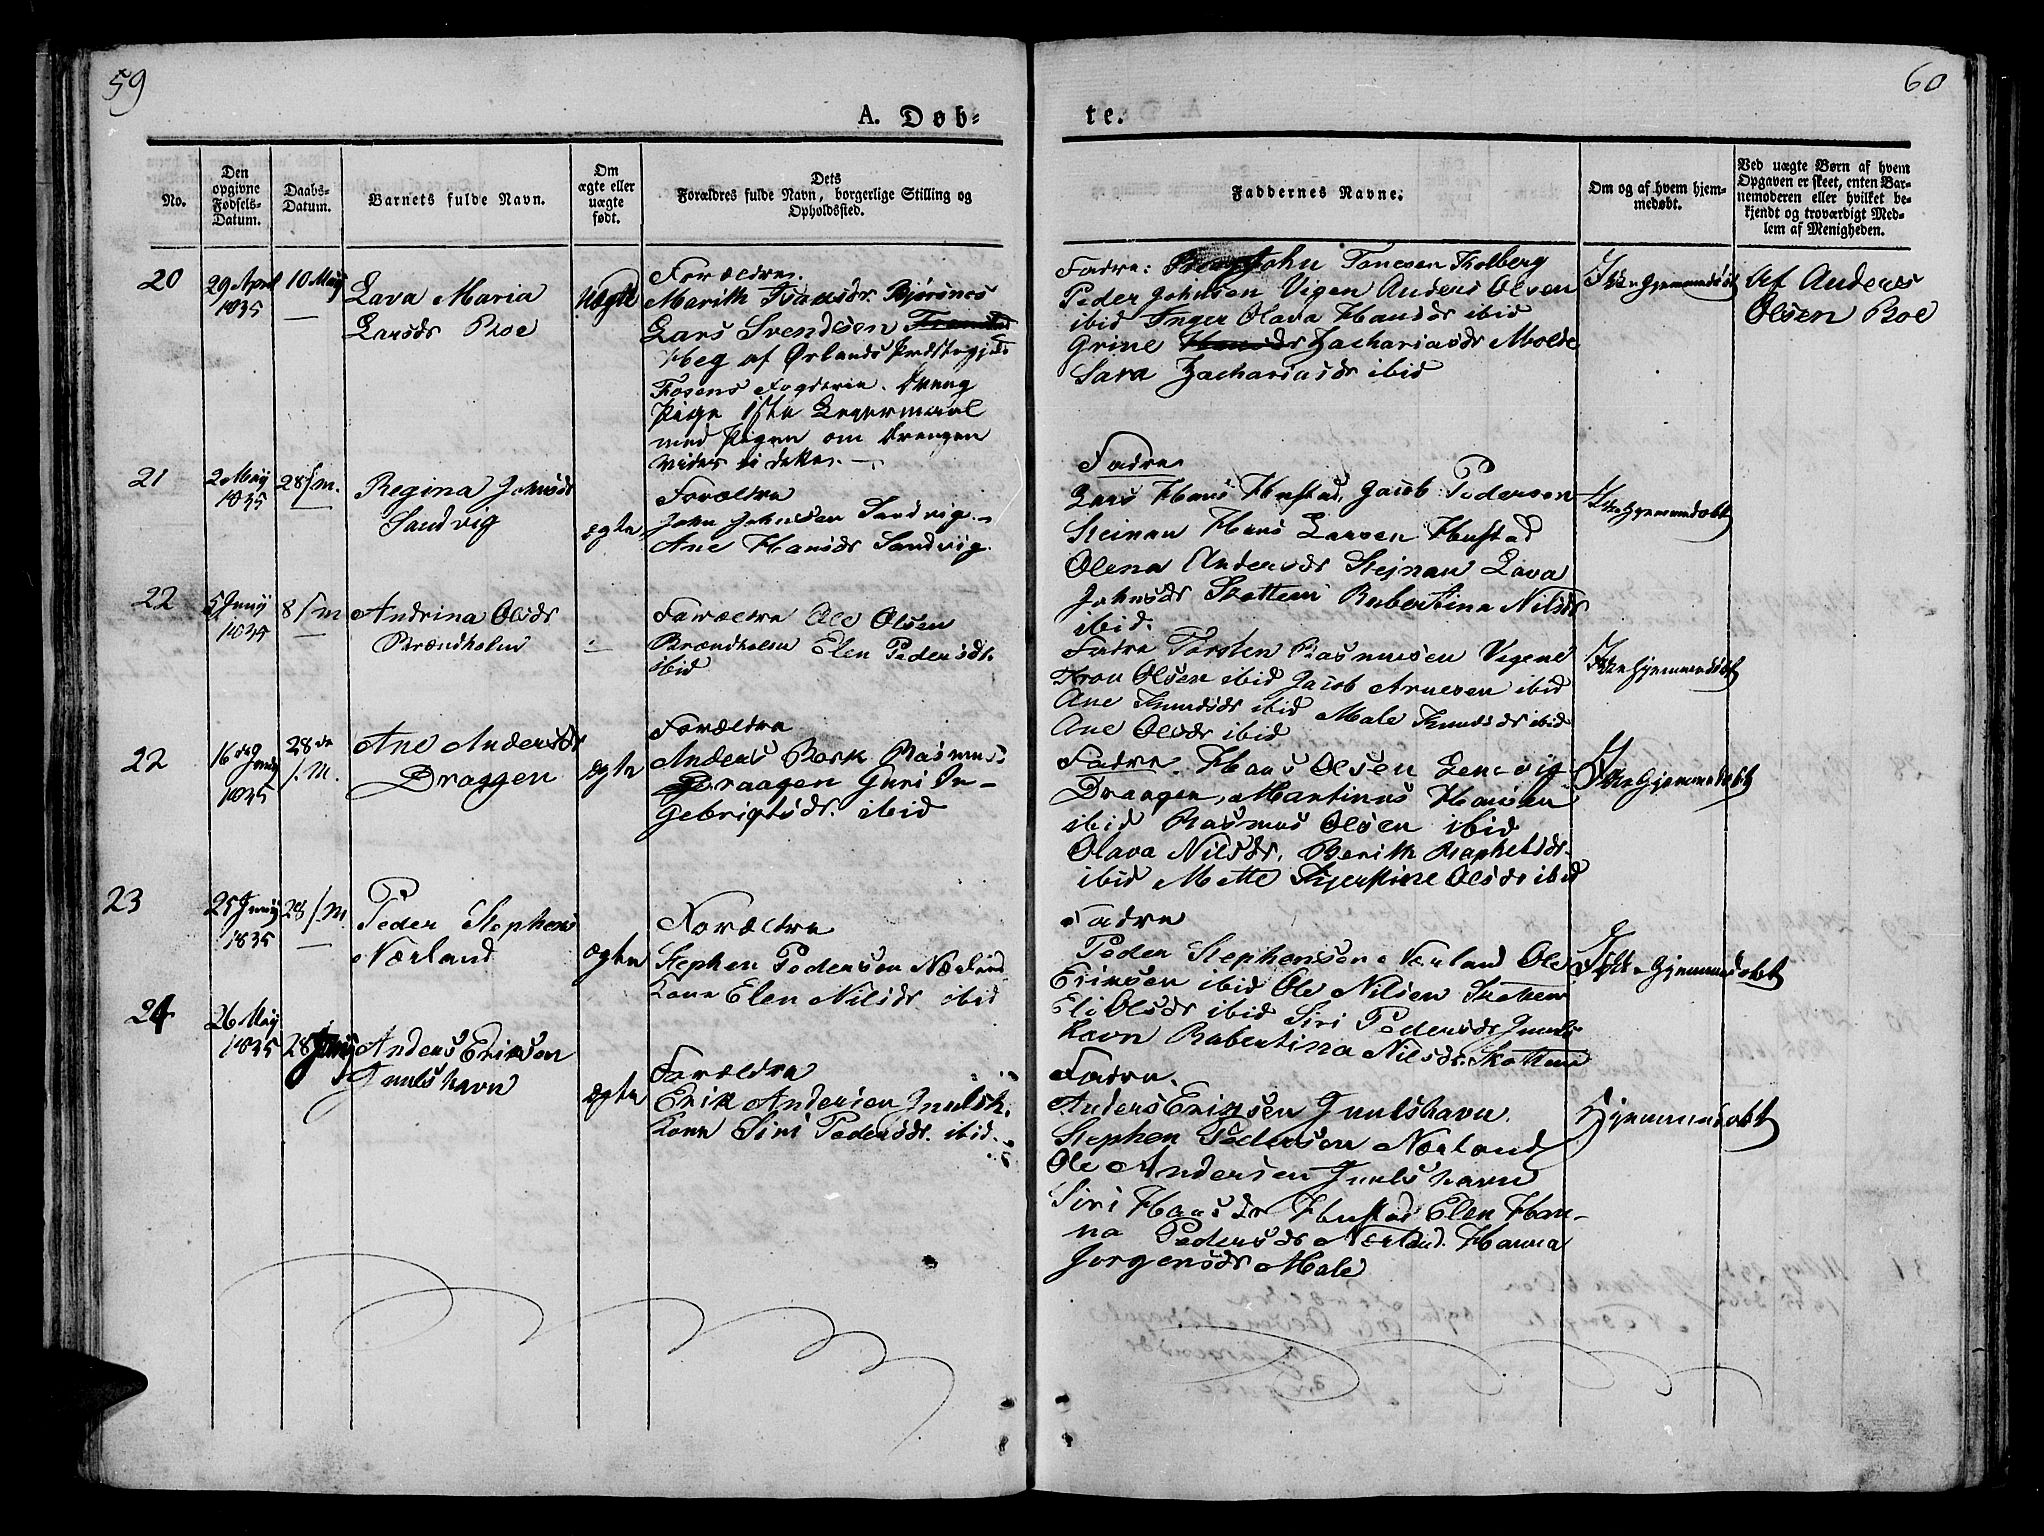 59
60
A. Døb=
te.
No.
Den opgivne Fødsels-Datum.
Daabs-Datum.
Barnets fulde Navn.
Om ægte eller uægte født.
Dets Forældres fulde Navn, borgerlige Stilling og Opholdssted.
Faddernes Navne.
Om og af hvem hjem-medøbt.
Ved uægte Børn af hvem Opgaven er skeet, enten Bar-nemoderen eller hvilket be-kjendt og troværdigt Med-lem af Menigheden.
20
29 April 1835
10 Maij
Lava Maria
Larsdr Roe
uægte
Forældre.
Marith Isaksdr. Bjørsnes
Lars Svendsen
Heg af Ørlands Præstegjeld
Fosens Fogderie. Dreng
Pige 1ste Legermaal
med Pigen om Drengen
vides ei dette.
Fadre: John Tønesen Kolberg
Peder Johnsen Vigen Anders Olsen
ibid Inger Olava Hansdr ibid
Grine Zachariasdr Molde
Sara Zachariasdr ibid
Ikke Hjemmedøbt
Af Anders
Olsen Roe
21
2 Maij 1835
28/m.
Regina Johnsdr
Sandvig
ægte
Forældre
John Johnsen Sandvig.
Ane Hansdr Sandvig.
Fadre
Lars Hans Hustad, Jacob Pedersen
Steinan Hans Larsen Hustad
Olena Andersdr Stejnan Lava
Johnsdr Skottem Rubertina Nilsdr
ibid.
Ikke Hjemmedøbt
22
5 Junij 1835
28/m
Andrina Olsdr
Brændholm
Forældre Ole Olsen
Brændholm Elen Pedersdr.
ibid
Fadre Torsten Rasmusen Vegene
Iron Olsen ibid Jacob Arnesen ibid
Ane Knudsdr ibid Male Knudsdr ibid
Ane Olsdr ibid
Ikke Hjemmedøbt
22
16de Junij 1835
28de /M.
Ane Andersdr
Draggen
ægte
Forældre
Anders Berk Rasmus
Draagen Guri In-
gebrigtsdr. ibid
Fadre. Hans Olsen
Draagen, Martinus Hansen
ibid Rasmus Olsen ibid
Olava Nilsdr. Berith Raphelsdr.
ibid Mette Kjerstine Olsdr ibid
Ikke Hjemmedøbt
23
25 Junij 1835
28/M.
Peder Stephens
Nærland
ægte
Forældre
Stephen Pedersen Nærland
Kone Elen Nilsdr ibid
Fadre
Peder Stephensen Nærland Ole
Eriksen ibid Ole Nilsen Skottem
Eli Olsdr ibid Siri Pedersdr Juuls
havn Rabertina Nilsdr. Skottem
Ikke Hjemmedøbt
24
26 Maij 1835
28 Junij
Anders Eriksen
Juulshavn
ægte
Forældre
Erik Andersen Juulsh.
Kone Siri Pedersdr. ibid.
Fadre.
Anders Eriksen Juulshavn.
Stephen Pedersen Nærland
Ole Andersen Juulshavn
Siri Hansdr Hustad Elen Han-
na Pedersdr Nerland. Hanna
Jorgensdr Male
Hjemmedøbt